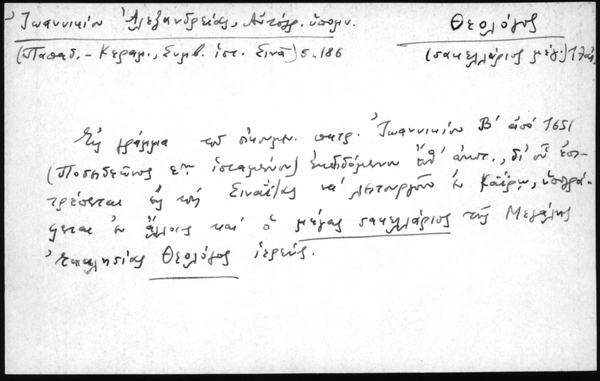 Ἰωαννικίου Ἀλεξανδρείας, Αὐτόγρ. ὑπομν. Θεολόγος
(Παπαδ.-Κεραμ., Συμβ. ἱστ. Σινᾶ) σ. 186 (σακελλάριος μέγ.) 17 αἰ.
Εἰς γράμμα τοῦ οἰκουμ. πατρ. Ἰωαννικίου Β' ἀπό 1651
(Ποσηδεῶνος ἱσταμένου) ἐκδιδόμενον ἐνθ' ἀνωτ., δι' οὗ ἐπι-
τρέπεται εἰς τούς Σιναΐτας νά λειτουργοῦν ἐν Καΐρῳ, ὑπογρά-
φεται ἐν ἄλλοις καί ὁ μέγας σακελλάριος τῆς Μεγάλης
Ἐκκλησίας Θεολόγος ἱερεύς.